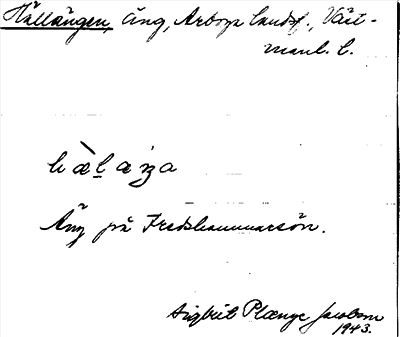 Hällängen, äng, Arboga landsf., Väst-
manl. l.
hæ̀l a ŋa
Äng på Fredshammarsön.
Sigbrit Plænge Jacobson
1943.